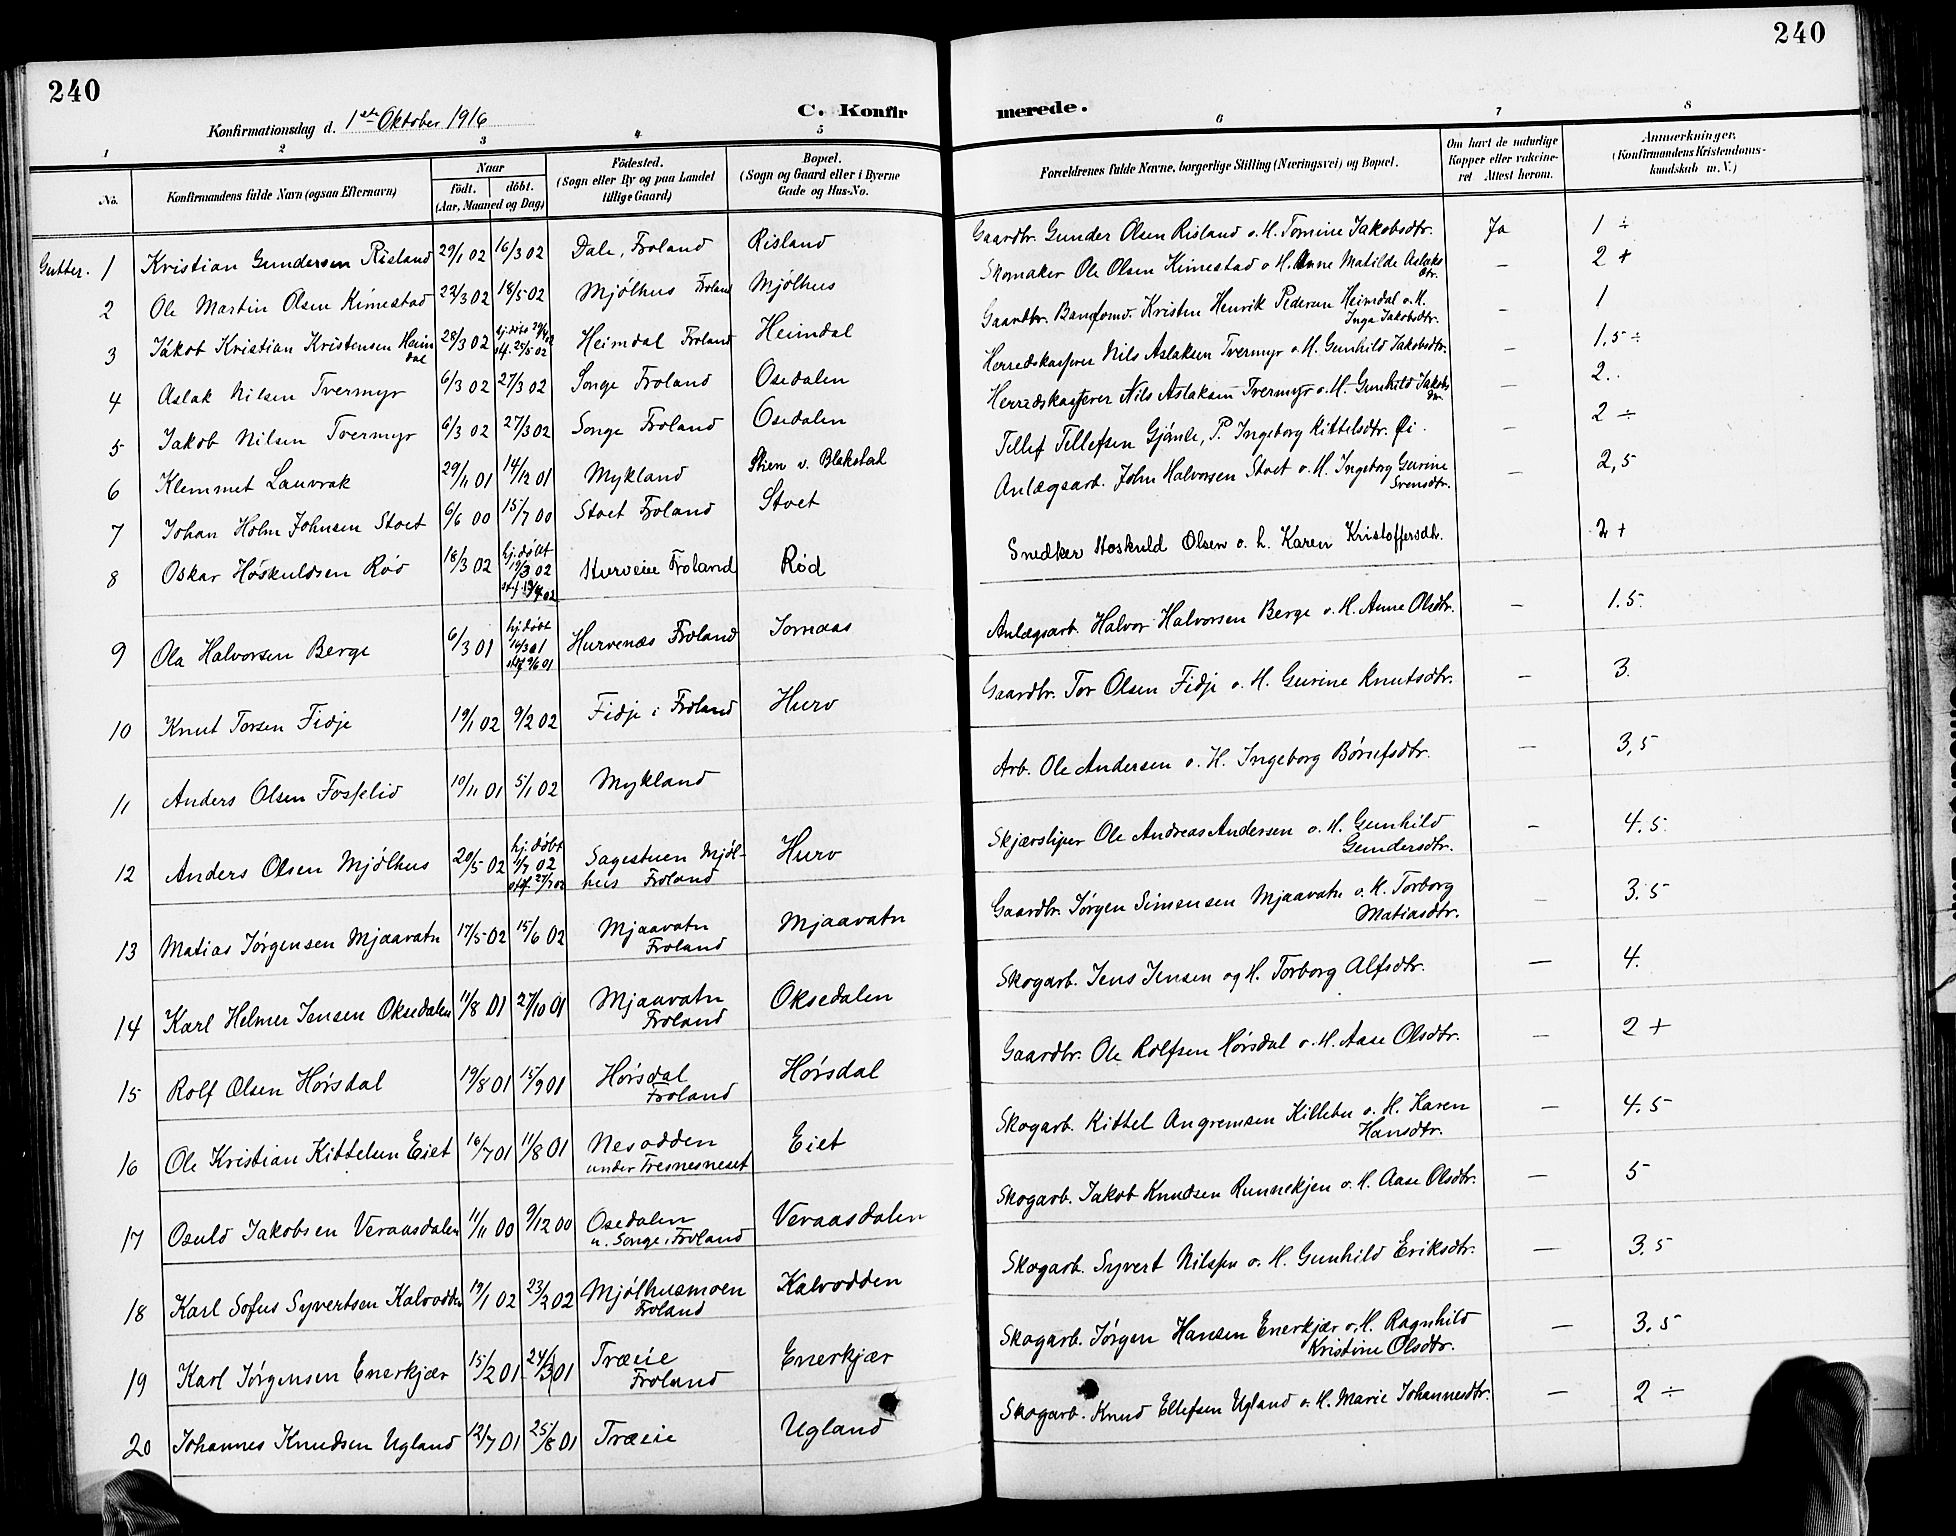 240
Konfirmationsdag d. 1ste Oktober 1916
C. Konfir
1 2 3 4 5
No. Konfirmandens fulde Navn (ogsaa Efternavn) Naar født. døbt. (Aar, Maaned og Dag) Fødested. (Sogn eller By og paa Landet tillige Gaard) Bopæl. (Sogn og Gaard eller i Byerne Gade og Hus-No.
Gutter. 1 Kristian Gundersen Risland 29/1 02 16/3 02 Dale, Froland Risland
2 Ole Martin Olsen Kimestad 22/3 02 18/5 02 Mjølhus Froland Mjølhus
3 Jakob Kristian Kristensen Heimdal 28/3 02 hj. døbt 29/4 02 stf. 25/5 02 Heimdal Froland Heimdal
4 Aslak Nilsen Tvermyr 6/3 02 27/3 02 Songe Froland Osedalen
5 Jakob Nilsen Tvermyr 6/3 02 27/3 02 Songe Froland Osedalen
6 Klemmet Lauvrak 29/11 01 14/12 01 Mykland Stien v. Blakstad
7 Johan Holm Johnsen Stoet 6/6 00 15/7 00 Stoet Froland Stoet
8 Oskar Høskuldsen Rød 18/3 02 hj. døbt 19/3 02 Hurveie Froland Rød
9 Ola Halvorsen Berge 6/3 01 hj. døbt 16/3 01 stf 9/6 01 Hurvenæs Froland Jomaas
10 Knut Torsen Fidje 19/1 02 9/2 02 Fidje i Froland Hurv
11 Anders Olsen Fosselid 10/11 01 5/1 02 Mykland
12 Anders Olsen Mjølhus 20/5 02 hj. døbt 1/7 02 stf. 27/7 02 Sagestuen Mjølhus Froland Hurv
13 Matias Jørgensen Mjaavatn 17/5 02 15/6 02 Mjaavatn Froland Mjaavatn
14 Karl Helmer Jensen Oksedalen 11/8 01 27/10 01 Mjaavatn Froland Oksedalen
15 Rolf Olsen Hørsdal 19/8 01 15/9 01 Hørsdal Froland Hørsdal
16 Ole Kristian Kittelsen Eiet 16/7 01 11/8 01 Nesodden under Fresnesneset Eiet
17 Osuld Jakobsen Veraasdalen 11/11 00 9/12 00 Osedalen u. Songe, Froland Veraasdalen
18 Karl Sofus Syvertsen Kalvodden 19/1 02 23/2 02 Mjølhusmoen Froland Kalvodden
19 Karl Jørgensen Enerkjær 15/2 01 24/3 01 Træeie Froland Enerkjær
20 Johannes Knudsen Ugland 12/7 01 25/8 01 Træeie Ugland
240
merede.
6 7 8
Forældrenes fulde Navne, borgerlige Stilling (Næringsvei) og Bopæl. Om havt de naturlige Kopper eller vakcineret Attest herom. Anmerkninger. (Konfirmandens Kristendomskundskab m. V.)
Gaardbr. Gunder Olsen Risland o. H. Tomine Jakobsdtr. Ja 1 ÷
Skomaker Ole Olsen Kimestad o H. Anne Matilde Aslaksdtr. – 2 +
Gaardbr. Kristen Henrik Pedersen Heimdal o. H. Inga Jakobsdtr. – 1
Herredskasserer Nils Aslaksen Tvermyr o. H. Gunhild Jakobsdtr. – 1,5 ÷
Herredskasserer Nils Aslaksen Tvermyr o. H. Gunhild Jakobsdtr. – 2.
Tellef Tellefsen Gjønle, P. Ingeborg Kittelsdtr. Øi. – 2 ÷
Anlægsarb. John Halvorsen Stoet o. H. Ingeborg Gurine Svensdtr. – 2,5
Snedker Hoskuld Olsen o. h. Karen Kristoffersdtr. 2 +
Anlægsarb. Halvor Halvorsen Berge o. H. Anne Olsdtr. – 1.5.
Gaardbr. Tor Olsen Fidje o. H. Gurine Knutsdtr. – 3.
Arb. Ole Andersen o. H. Ingeborg Børufsdtr. – 3,5
Skjærsliper Ole Andreas Andersen o. H. Gunhild Gundersdtr. – 4.5.
Gaardbr. Jørgen Simensen Mjaavatn o. H. Torborg Matiasdtr. – 3.5
Skogarb. Jens Jensen og H. Torborg Alfsdtr. – 4.
Gaardbr. Ole Rolfsen Hørsdal o. H. Aase Olsdtr. – 2 +
Skogarb. Kittel Angremsen Killebu o. H. Karen Hansdtr. – 4.5
Skogarb. Jakob Knudsen Runnekjen o. H. Aase Olsdtr. – 5
Skogarb. Syvert Nilssen o. H. Gunhild Eriksdtr. – 3.5
Skogarb. Jørgen Hansen Enerkjær o. H. Ragnhild Kristine Olsdtr. – 3.5
Skogarb. Knud Ellefsen Ugland o. H. Marie Johannesdtr. – 2 ÷